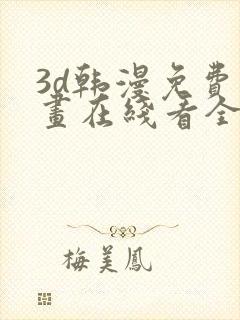 3d韩漫免费
画在线看全
梅美凤